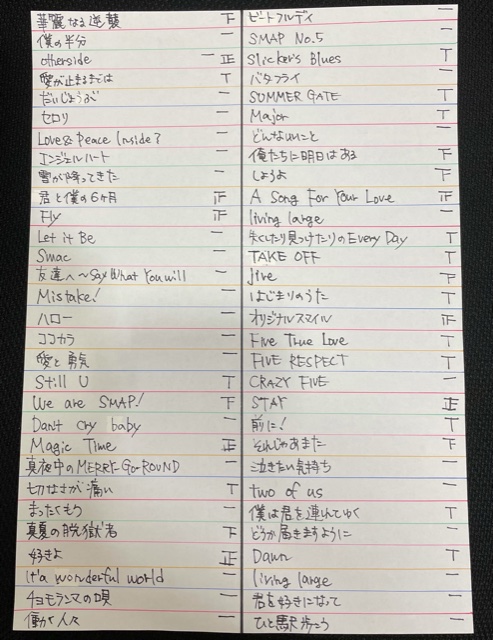 華麗なる逆襲 下
僕の半分 一
otherside 一 正
愛が止まるまでは T
だいじょうぶ 一
セロリ 一
Love & Peace Inside? 一
エンジェルハート 一
雪が降ってきた 一
君と僕の6ヶ月 正
Fly 正
Let it Be 一
Smac 一
友達へ〜Say What You will 一
Mistake! 一
ハロー 一
ココカラ 一
愛と勇気 一
Still U T
We are SMAP! 下
Dant cry baby 一
Magic Time 正
真夜中のMERRY-GO-ROUND 一
切なさが痛い T
まったくもう 一
真夏の脱獄者 下
好きよ 正
It'a wonderful world 一
チョモランマの唄 一
働く人々 一
ビートフルデイ 一
SMAP No.5 一
Slicker's Blues T
バタフライ 一
SUMMER GATE T
Major T
どんないいこと 一
俺たちに明日はある 下
しようよ 下
A Song For Your Love 正
living large 一
失くしたり見つけたりのEvery Day T
TAKE OFF T
jive 下
はじまりのうた T
オリジナルスマイル 正
Five True Love T
FIVE RESPECT T
CRAZY FIVE 一
STAY 正
前に! T
それじゃあまた 下
泣きたい気持ち 一
two of us 一
僕は君を連れてゆく T
どうか届きますように 一
Dawn T
living large 一
君を好きになって 一
ひと駅歩こう 一